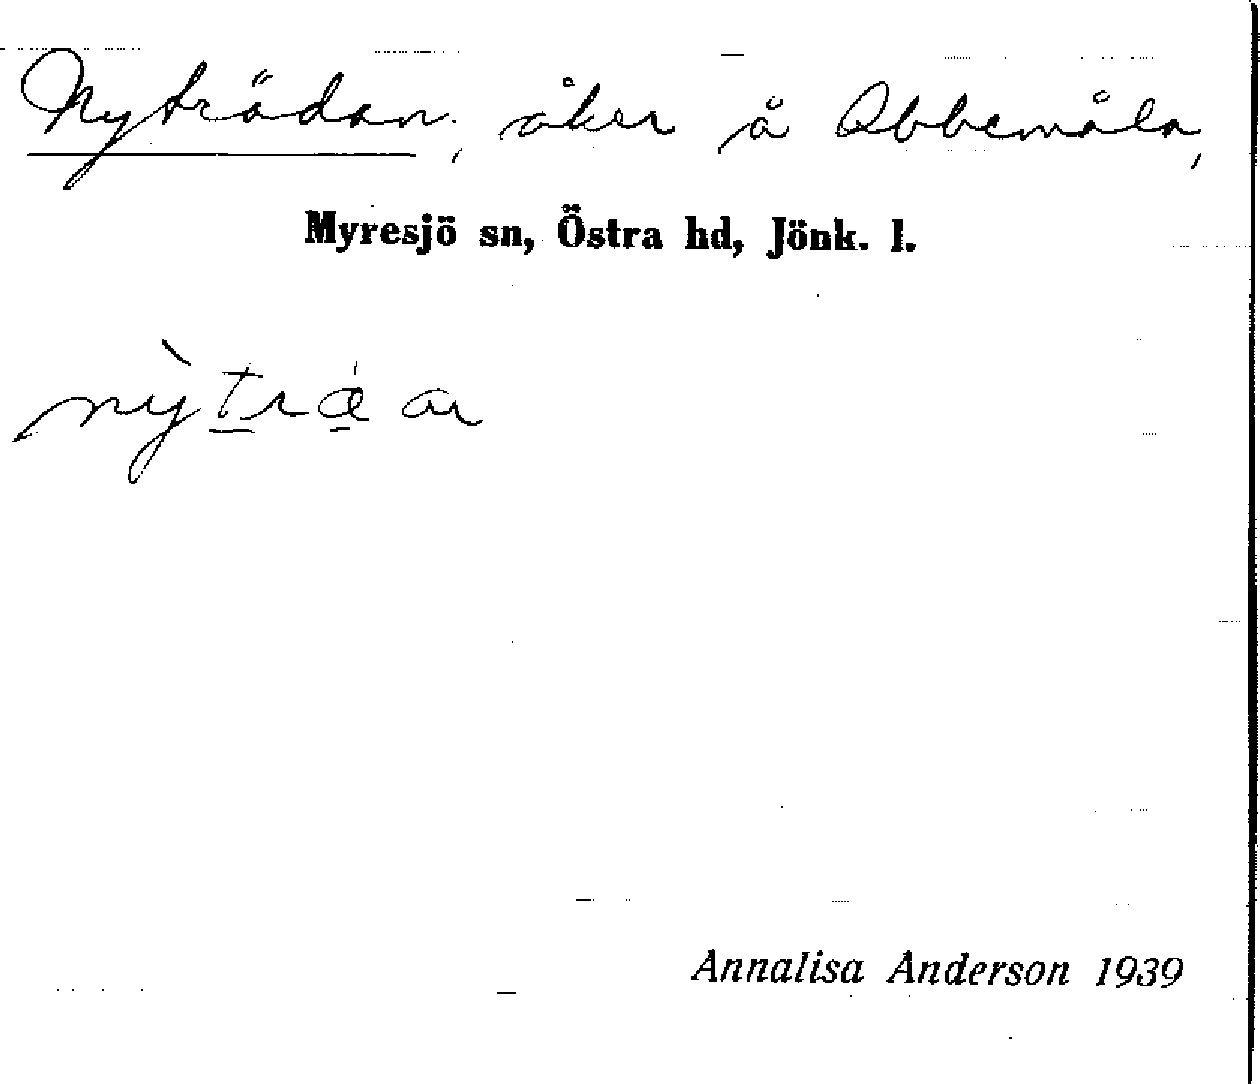 Nyträdan, åker å Abbemåla,
Myresjö sn, Östra hd, Jönk. l.
Annalisa Anderson 1939